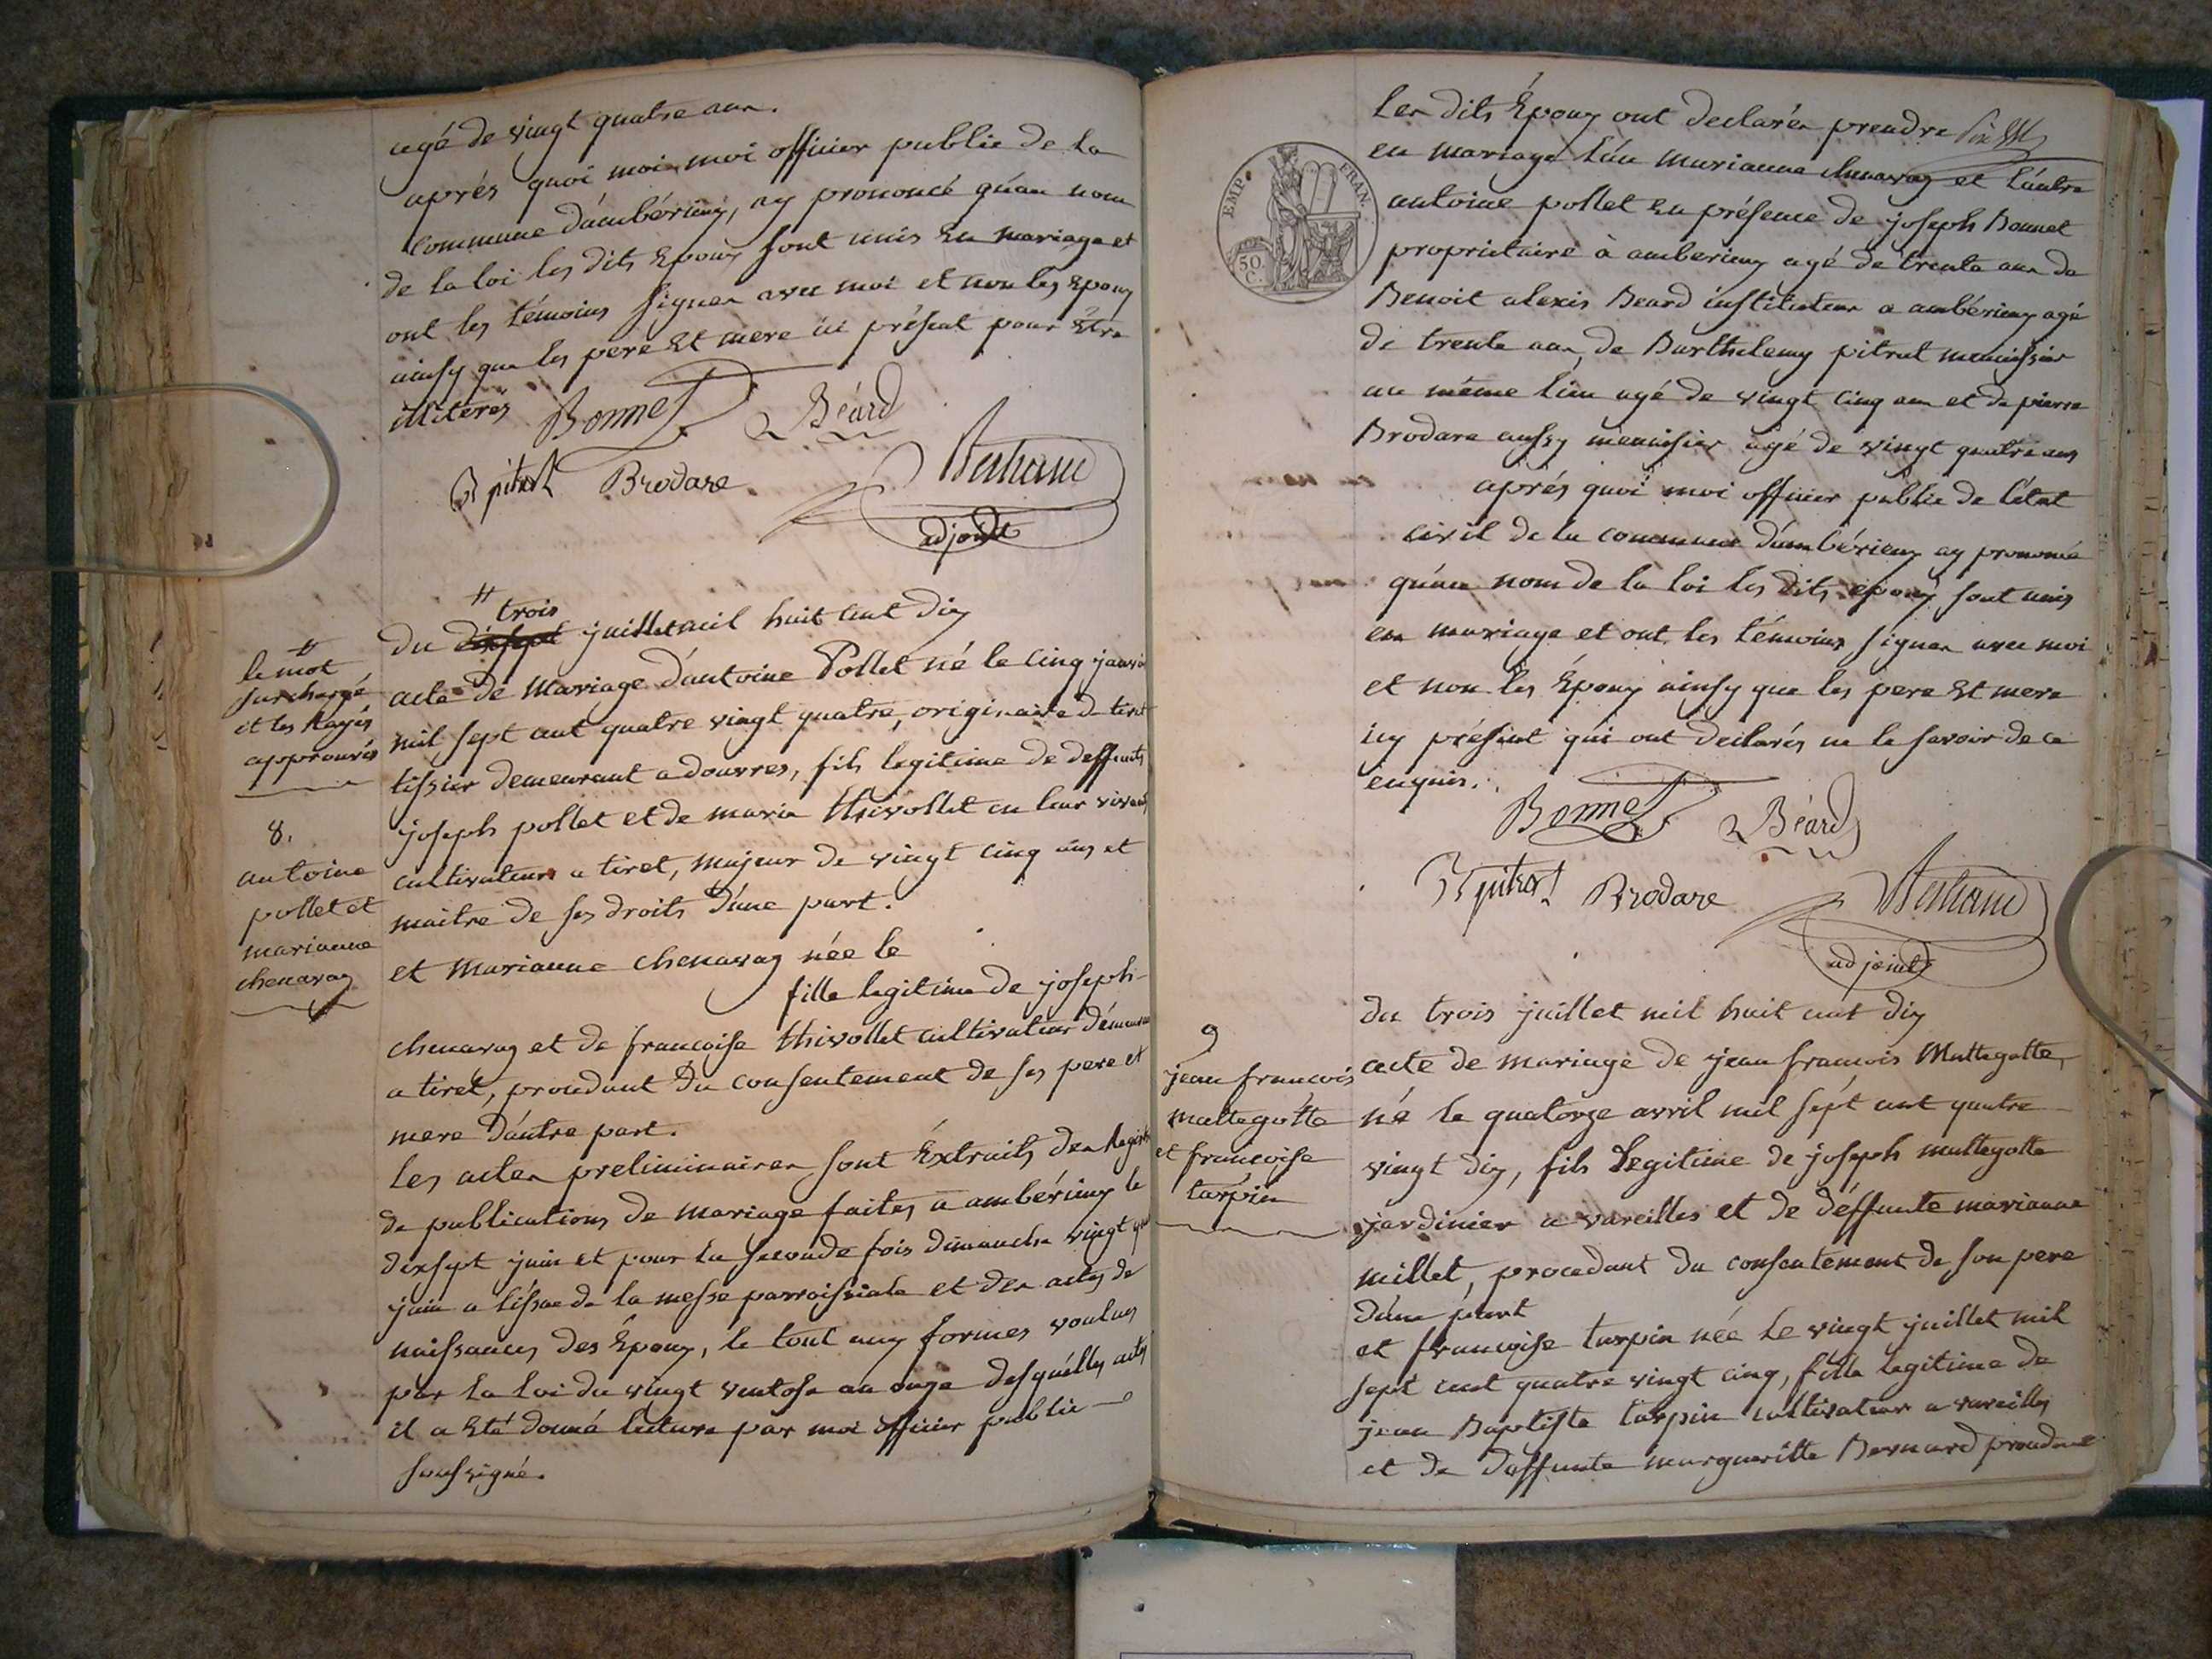 agé de vingt quatre ans.
aprés quoi moi moi officier public de la
commune d'ambérieux, ay prononcé qu'au nom
de la loi les dits Epoux sont unis en mariage et
ont les témoins signer avec moi et non les Epoux
ainsy que les pere et mere ici présent pour Etre
illiteres
Bonnet Béard
B pitrat Brodare
Bertrand
adjoint
#
trois
du dixsept juillet mil huit cent dix
#
le mot
surchargé
et les Rayés
approuvés
8.
antoine
pollet et
marianne
chenavaz
acte de Mariage d'antoine Pollet né le cinq janvier
mil sept cent quatre vingt quatre, originaire de tiret
tissier demeurant a douvres, fils legitime de deffunts
joseph pollet et de marie thivollet en leur vivant
cultivateurs a tiret, majeur de vingt cinq ans et
maitre de ses droits d'une part.
et Marianne chenavaz née le
fille legitime de joseph
chenavaz et de francoise thivollet cultivateur demeurant
a tiret, procedant du consentement de ses pere et
mere d'autre part.
les actes preliminaires sont Extraits des Registres
de publications de mariage faites a ambérieux le
dixsept juin et pour la seconde fois dimanche vingt quatre
juin a l'issue de la messe parroissiale et des actes de
naissances des Epoux, le tout aux formes voulues
par la loi du vingt ventose an onze desquelles actes
il a Eté donné lecture par moi officier public
soussigné.
les dits Époux ont declarés prendre
en mariage l'un marianne chenavaz et l'autre
EMP. FRAN.
50
C.
antoine pollet en présence de joseph Bonnet
proprietaire à amberieux agé de trente ans de
Benoit alexis Beard instituteur a ambérieux agé
de trente ans, de Barthelemy pitrat menuissier
au même lieu agé de vingt cinq ans et de pierre
Brodare aussy menuisier agé de vingt quatre ans
aprés quoi moi officier public de l'état
civil de la commune d'ambérieux ay prononcé
qu'au nom de la loi les dits epoux sont unis
en mariage et ont les témoins signer avec moi
et non les Époux ainsy que les pere et mere
icy présent qui ont declarés ne le savoir de ce
enquis.
Bonnet Béard
B pitrat Brodare Bertrand
adjoint
du trois juillet mil huit cent dix
9
jean francois
mallegotte
et francoise
turpin
acte de mariage de jean francois Mallegotte,
né le quatorze avril mil sept cent quatre
vingt dix, fils Legitime de joseph mallegotte
jardinier a vareilles et de déffunte marianne
millet, procedant du consentement de son pere
d'une part
et francoise turpin née le vingt juillet mil
sept cent quatre vingt cinq, fille legitime de
jean Baptiste turpin cultivateur a vareilles
et de deffunte margueritte Bernard procedant